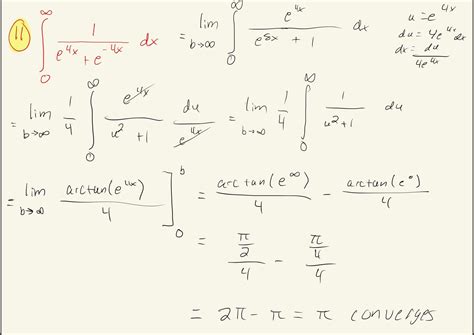 11 ∫₀^∞ 1/(e^{4x} + e^{-4x}) dx = lim_{b→∞} ∫₀^∞ e^{4x}/(e^{8x} + 1) dx
u = e^{4x}
du = 4e^{4x} dx
dx = du/(4e^{4x})
= lim_{b→∞} 1/4 ∫₀^∞ e^{4x}/(u² + 1) du/e^{4x} = lim_{b→∞} 1/4 ∫₀^∞ 1/(u² + 1) du
= lim_{b→∞} arctan(e^{4x})/4 ]₀^b = arctan(e^∞)/4 − arctan(e^0)/4
= (π/2)/4 − (π/4)/4
= 2π − π = π converges